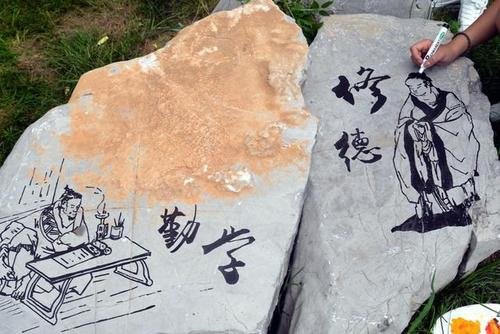 勤学
修德